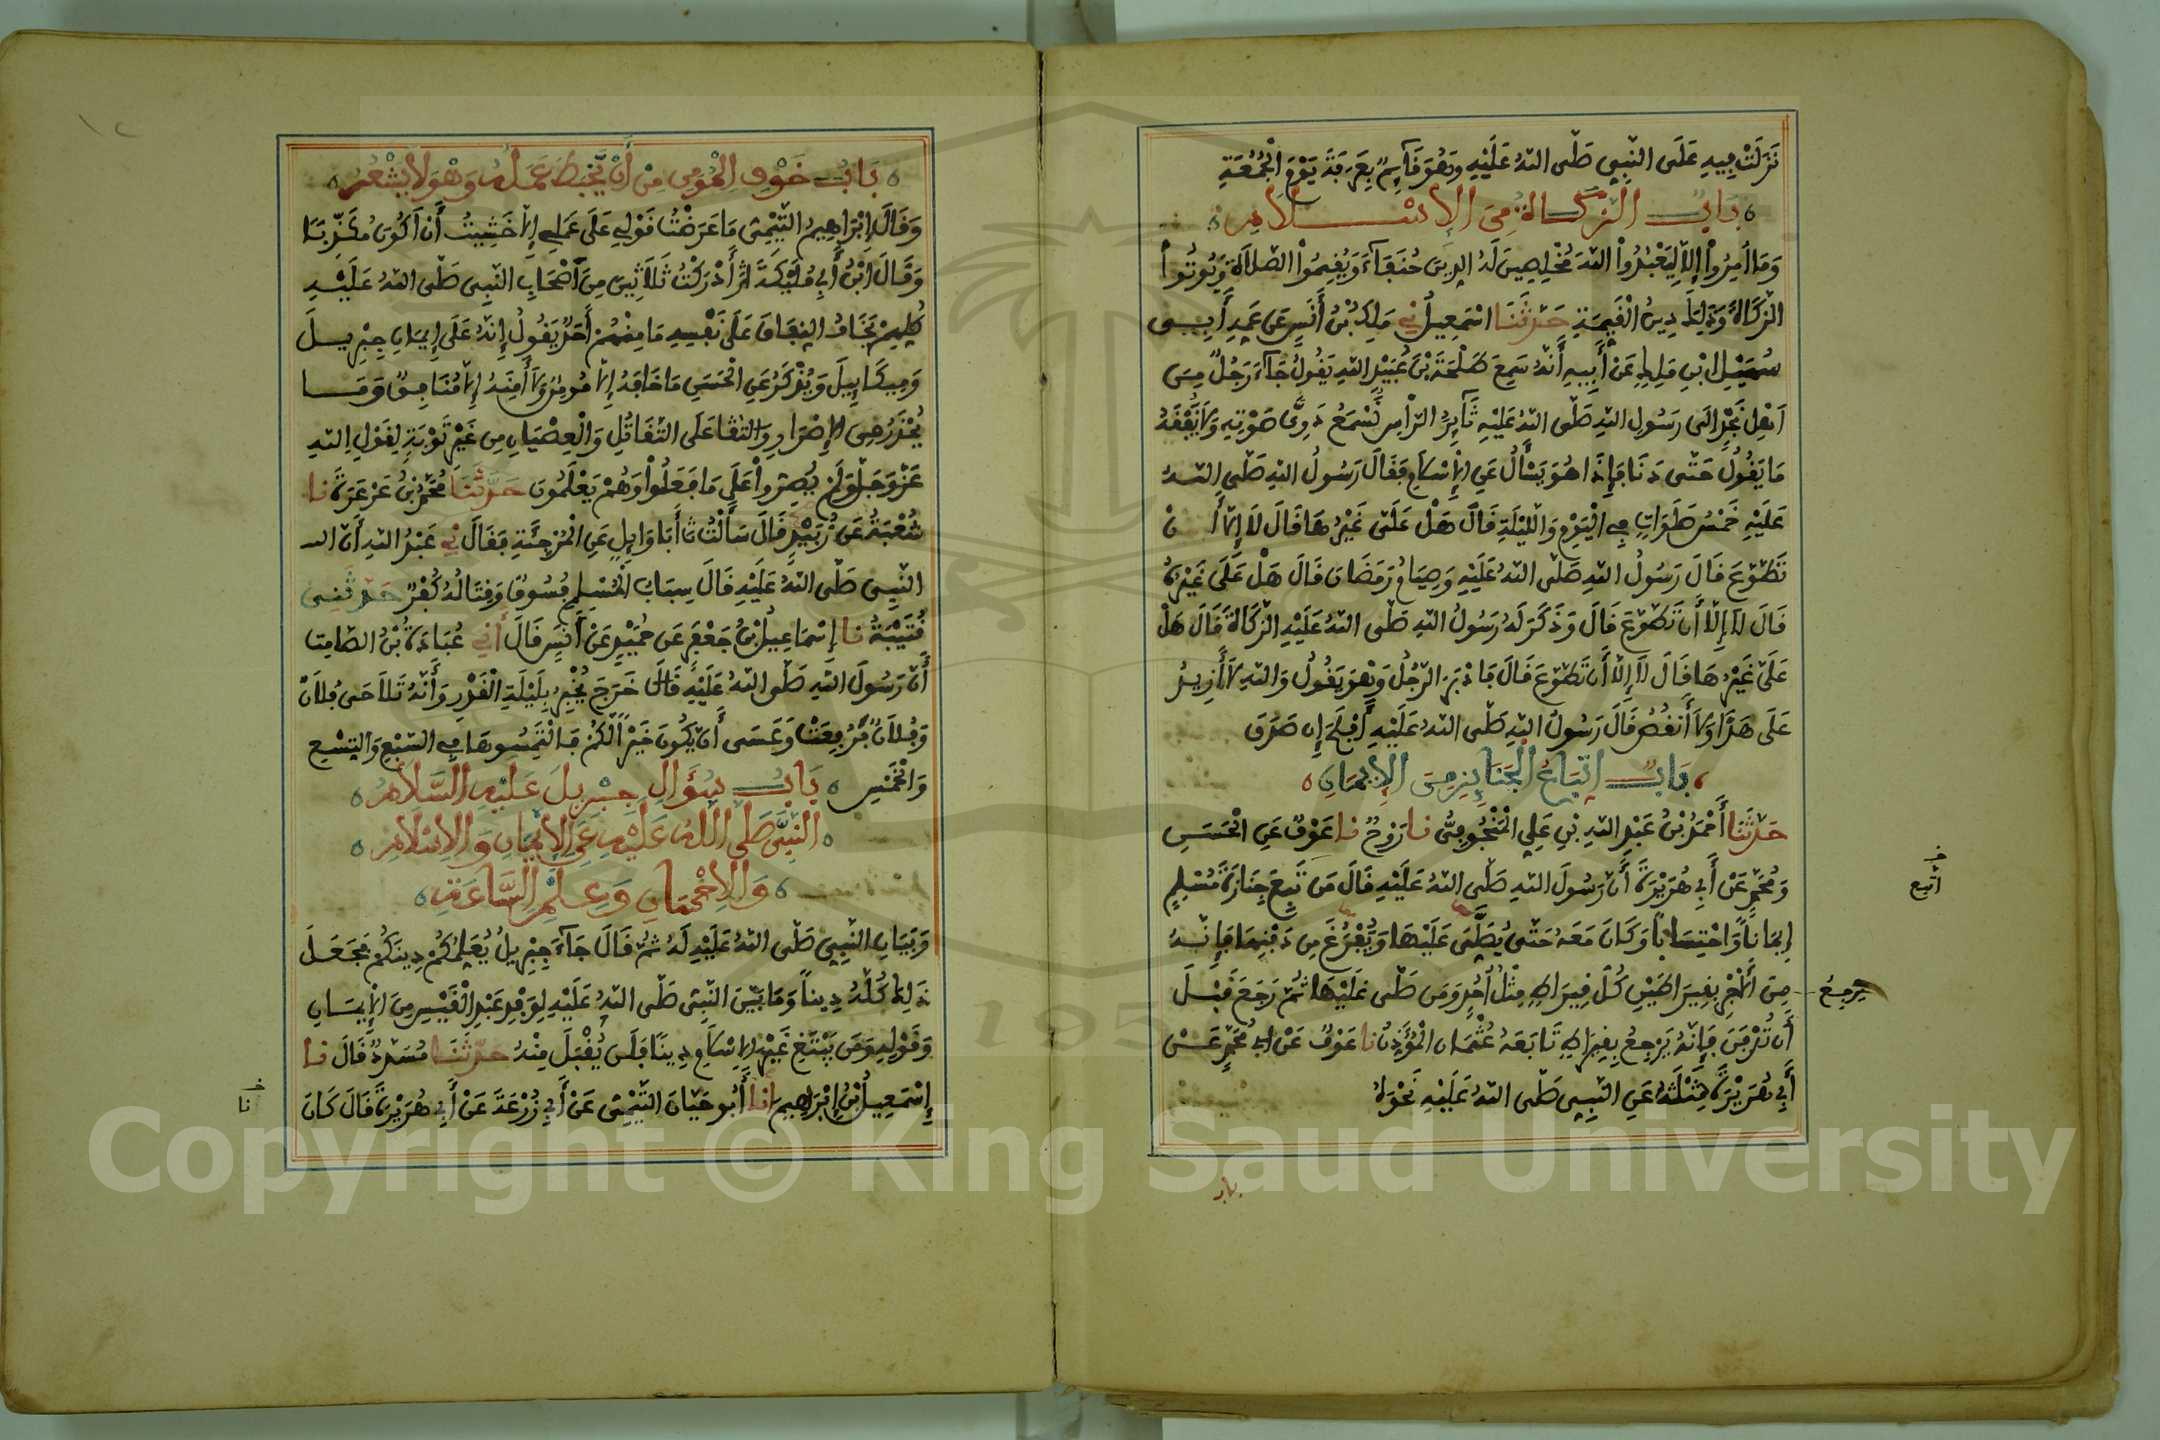 نَزَلَتْ فِيهِ عَلَى النَّبِيِّ صَلَّى اللَّهُ عَلَيْهِ وَهُوَ قَآئِمٌ بِعَرَفَةَ يَوْمَ الْجُمُعَةِ
بَابُ الزَّكَاةُ مِنَ الإِسْلَامِ
وَمَا أُمِرُوا إِلاَّ لِيَعْبُدُوا اللَّهَ مُخْلِصِينَ لَهُ الدِّينَ حُنَفَآءَ وَيُقِيمُوا الصَّلاَةَ وَيُوتُوا
الزَّكَاةَ وَذَلِكَ دِينُ الْقَيِّمَةِ حَدَّثَنَا اسْمَعِيلُ ني مَلِكُ بْنُ أَنَسٍ عَنْ عَمِّهِ أَبِي
سُهَيْلِ ابْنِ مَلِكٍ عَنْ أَبِيهِ أَنَّهُ سَمِعَ طَلْحَةَ بْنَ عُبَيْدِ اللَّهِ يَقُولُ جَآءَ رَجُلٌ مِنَ
اَهْلِ نَجْدٍ الَى رَسُولِ اللَّهِ صَلَّى اللَّهُ عَلَيْهِ ثَآئِرُ الرَّأْسِ نَسْمَعُ دَوِيَّ صَوْتِهِ وَلاَ نَفْقَهُ
مَا يَقُولُ حَتَّى دَنَا فَإِذَا هُوَ يَسْأَلُ عَنِ الإِسْلاَمِ فَقَالَ رَسُولُ اللَّهِ صَلَّى اللَّهُ
عَلَيْهِ خَمْسُ صَلَوَاتٍ فِي الْيَوْمِ وَاللَّيْلَةِ قَالَ هَلْ عَلَيَّ غَيْرُهَا قَالَ لَا إِلاَّ أَنْ
تَطَّوَّعَ قَالَ رَسُولُ اللَّهِ صَلَّى اللَّهُ عَلَيْهِ وَصِيَامُ رَمَضَانَ قَالَ هَلْ عَلَيَّ غَيْرُهُ
قَالَ لاَ إِلاَّ أَنْ تَطَّوَّعَ قَالَ وَذَكَرَ لَهُ رَسُولُ اللَّهِ صَلَّى اللَّهُ عَلَيْهِ الزَّكَاةَ قَالَ هَلْ
عَلَيَّ غَيْرُهَا قَالَ لاَ إِلاَّ أَنْ تَطَّوَّعَ قَالَ فَادْبَرَ الرَّجُلُ وَهْوَ يَقُولُ وَاللَّهِ لاَ أَزِيدُ
عَلَى هَذَا وَلاَ أَنْقُصُ قَالَ رَسُولُ اللَّهِ صَلَّى اللَّهُ عَلَيْهِ أَفْلَحَ إِن صَدَقَ
بَابُ اتِّبَاعُ الْجَنَائِزِ مِنَ الإِيمَانِ
حَدَّثَنَا أَحْمَدُ بْنُ عَبْدِ اللَّهِ بْنِ عَلِيٍّ الْمَنْجُوفِيُّ نا رَوْحٌ نا عَوْفٌ عَنِ الْحَسَنِ
وَمُحَمَّدٍ عَنْ أَبِي هُرَيْرَةَ أَنَّ رَسُولَ اللَّهِ صَلَّى اللَّهُ عَلَيْهِ قَالَ مَنْ تَبِعَ جَنَازَةَ مُسْلِمٍ
إِيمَاناً وَاحْتِسَاباً وَكَانَ مَعَهُ حَتَّى يُصَلَّى عَلَيْهَا وَيُفْرَغَ مِنْ دَفْنِهَا فَإِنَّهُ
مِنَ الْأَجْرِ بِقِيرَاطَيْنِ كُلُّ قِيرَاطٍ مِثْلُ أُحُدٍ وَمَنْ صَلَّى عَلَيْهَا ثُمَّ رَجَعَ قَبْلَ
أَن تُدْفَنَ فَإِنَّهُ يَرْجِعُ بِقِيرَاطٍ تَابَعَهُ عُثْمَانُ الْمُؤَذِّنُ نا عَوْفٌ عَنْ مُحَمَّدٍ عَنْ
أَبِي هُرَيْرَةَ مِثْلَهُ عَنِ النَّبِيِّ صَلَّى اللَّهُ عَلَيْهِ نَحْوَهُ
اتبع
يرجع
باب
بَابُ خَوْفِ الْمُومِنِ مِنْ أَنْ يَحْبَطَ عَمَلُهُ وَهْوَ لاَ يَشْعُرُ
وَقَالَ إِبْرَاهِيمُ التَّيْمِيُّ مَا عَرَضْتُ قَوْلِي عَلَى عَمَلِي إِلاَّ خَشِيتُ أَنْ اَكُونَ مُكَذِّبًا
وَقَالَ ابْنُ أَبِي مُلَيْكَةَ أَدْرَكْتُ ثَلاَثِينَ مِنَ اَصْحَابِ النَّبِيِّ صَلَّى اللَّهُ عَلَيْهِ
كُلُّهُمْ يَخَافُ النِّفَاقَ عَلَى نَفْسِهِ مَا مِنْهُمْ أَحَدٌ يَقُولُ إِنَّهُ عَلَى إِيمَانِ جِبْرِيلَ
وَمِيكَايِيلَ وَيُذْكَرُ عَنِ الْحَسَنِ مَا خَافَهُ إِلاَّ مُومِنٌ وَلاَ أَمِنَهُ إِلاَّ مُنَافِقٌ وَمَا
يُحْذَرُ مِنَ الإِصْرَارِ عَلَى التَّقَاتُلِ وَالْعِصْيَانِ مِن غَيْرِ تَوْبَةٍ لِقَوْلِ اللَّهِ
عَزَّ وَجَلَّ وَلَمْ يُصِرُّوا عَلَى مَا فَعَلُوا وَهُمْ يَعْلَمُونَ حَدَّثَنَا مُحَمَّدُ بْنُ عَرْعَرَةَ نا
شُعْبَةُ عَن زُبَيْدٍ قَالَ سَأَلْتُ أَبَا وَايِلٍ عَنِ الْمُرْجِئَةِ فَقَالَ ني عَبْدُ اللَّهِ أَنَّ
النَّبِيَّ صَلَّى اللَّهُ عَلَيْهِ قَالَ سِبَابُ الْمُسْلِمِ فُسُوقٌ وَقِتَالُهُ كُفْرٌ حَدَّثَنِي
قُتَيْبَةُ نا إِسْمَاعِيلُ بْنُ جَعْفَرٍ عَنْ حُمَيْدٍ عَنْ أَنَسٍ قَالَ أني عُبَادَةُ بْنُ الصَّامِتِ
أَنَّ رَسُولَ اللَّهِ صَلَّى اللَّهُ عَلَيْهِ قَالَ خَرَجَ يُخْبِرُ بِلَيْلَةِ الْقَدْرِ وَأَنَّهُ تَلاَحَى فُلاَنٌ
وَفُلاَنٌ فَرُفِعَتْ وَعَسَى أَنْ يَكُونَ خَيْراً لَكُمْ فَالْتَمِسُوهَا فِي السَّبْعِ وَالتِّسْعِ
وَالْخَمْسِ بَابُ سُؤَالِ جِبْرِيلَ عَلَيْهِ السَّلاَمُ
النَّبِيَّ صَلَّى اللَّهُ عَلَيْهِ عَنِ الإِيمَانِ وَالإِسْلاَمِ
وَالإِحْسَانِ وَعِلْمِ السَّاعَةِ
وَبَيَانِ النَّبِيِّ صَلَّى اللَّهُ عَلَيْهِ لَهُ ثُمَّ قَالَ جَآءَ جِبْرِيلُ يُعَلِّمُكُمْ دِينَكُمْ فَجَعَلَ
ذَلِكَ كُلَّهُ دِيناً وَمَا بَيَّنَ النَّبِيُّ صَلَّى اللَّهُ عَلَيْهِ لِوَفْدِ عَبْدِ الْقَيْسِ مِنَ الإِيمَانِ
وَقَوْلِهِ وَمَنْ يَبْتَغِ غَيْرَ الإِسْلاَمِ دِينًا فَلَنْ يُقْبَلَ مِنْهُ حَدَّثَنَا مُسَدَّدٌ قَالَ نا
إِسْمَعِيلُ بْنُ إِبْرَاهِيمَ انا أَبُو حَيَّانَ التَّيْمِيُّ عَنْ أَبِي زُرْعَةَ عَنْ أَبِي هُرَيْرَةَ قَالَ كَانَ
نا
Copyright © King Saud University